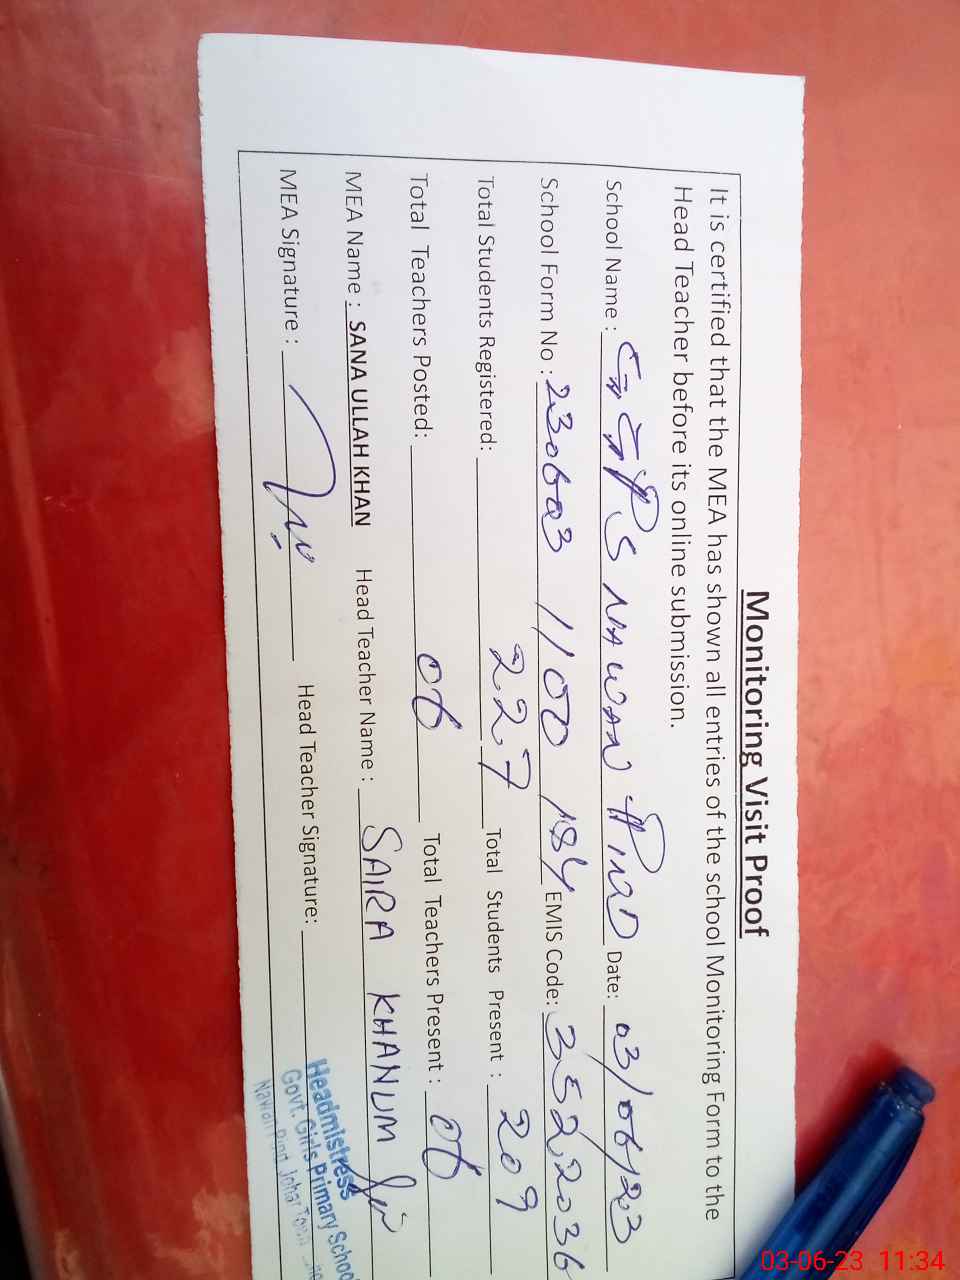 Monitoring Visit Proof
It is certified that the MEA has shown all entries of the school Monitoring Form to the
Head Teacher before its online submission.
School Name : GGPS NAWAN PIND Date: 03/06/23
School Form No : 230603 1100 184 EMIS Code: 35222036
Total Students Registered: 227 Total Students Present : 209
Total Teachers Posted: 06 Total Teachers Present : 06
MEA Name : SANA ULLAH KHAN Head Teacher Name : SAIRA KHANUM
MEA Signature : Head Teacher Signature:
Headmistress
Govt. Girls Primary School
Nawan Pind Johar Town
03-06-23 11:34